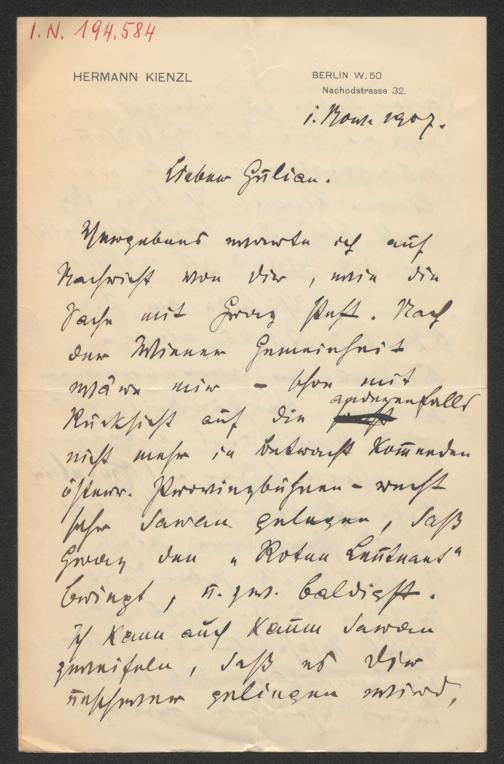 I.N. 194.584
HERMANN KIENZL
BERLIN W. 50
Nachodstrasse 32.
1. Nov. 1907.
Lieber Julian.
Vergebens warte ich auf
Nachricht von Dir, wie die
Sache mit Graz steht. Nach
der Wiener Gemeinheit
wäre mir – schon mit
Rücksicht auf die anderenfalls
nicht mehr in betracht kom̅enden
österr. Provinzbühnen – recht
sehr daran gelegen, daß
Graz den „Roten Leutnant"
bringt, u. zw. baldigst.
Ich kann auch kaum daran
zweifeln, daß es Dir
unschwer gelingen wird,